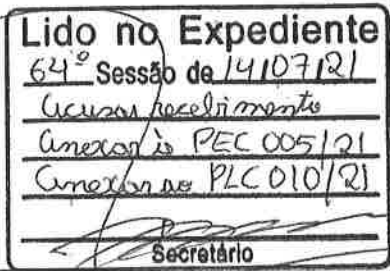 Lido no Expediente
64ª Sessão de 14/07/21
Acusar recebimento
anexar à PEC 005/21
Anexar ao PLC 010/21
Secretário